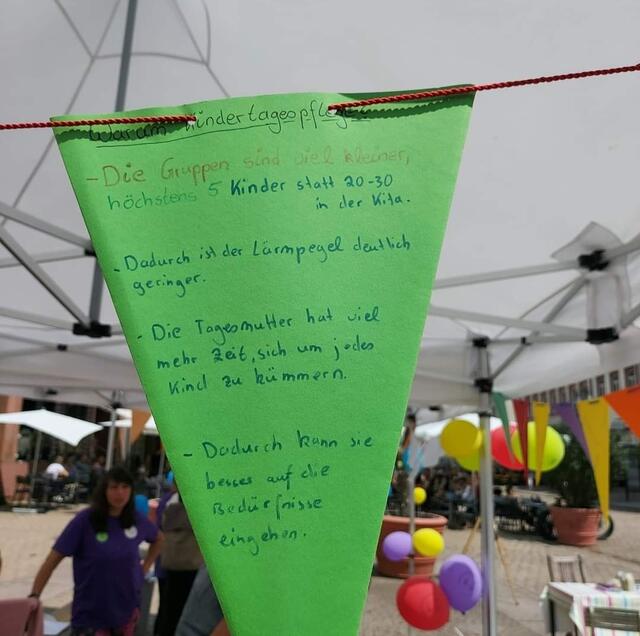 Warum Kindertagespflege?
- Die Gruppen sind viel kleiner,
höchstens 5 Kinder statt 20-30
in der Kita.
- Dadurch ist der Lärmpegel deutlich
geringer.
- Die Tagesmutter hat viel
mehr Zeit, sich um jedes
Kind zu kümmern.
- Dadurch kann sie
besser auf die
Bedürfnisse
eingehen.